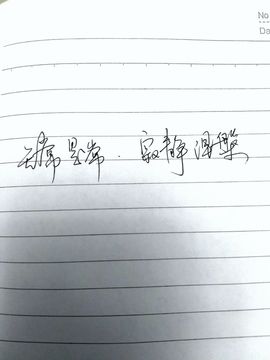 No
Da
无常是常.寂静涅槃